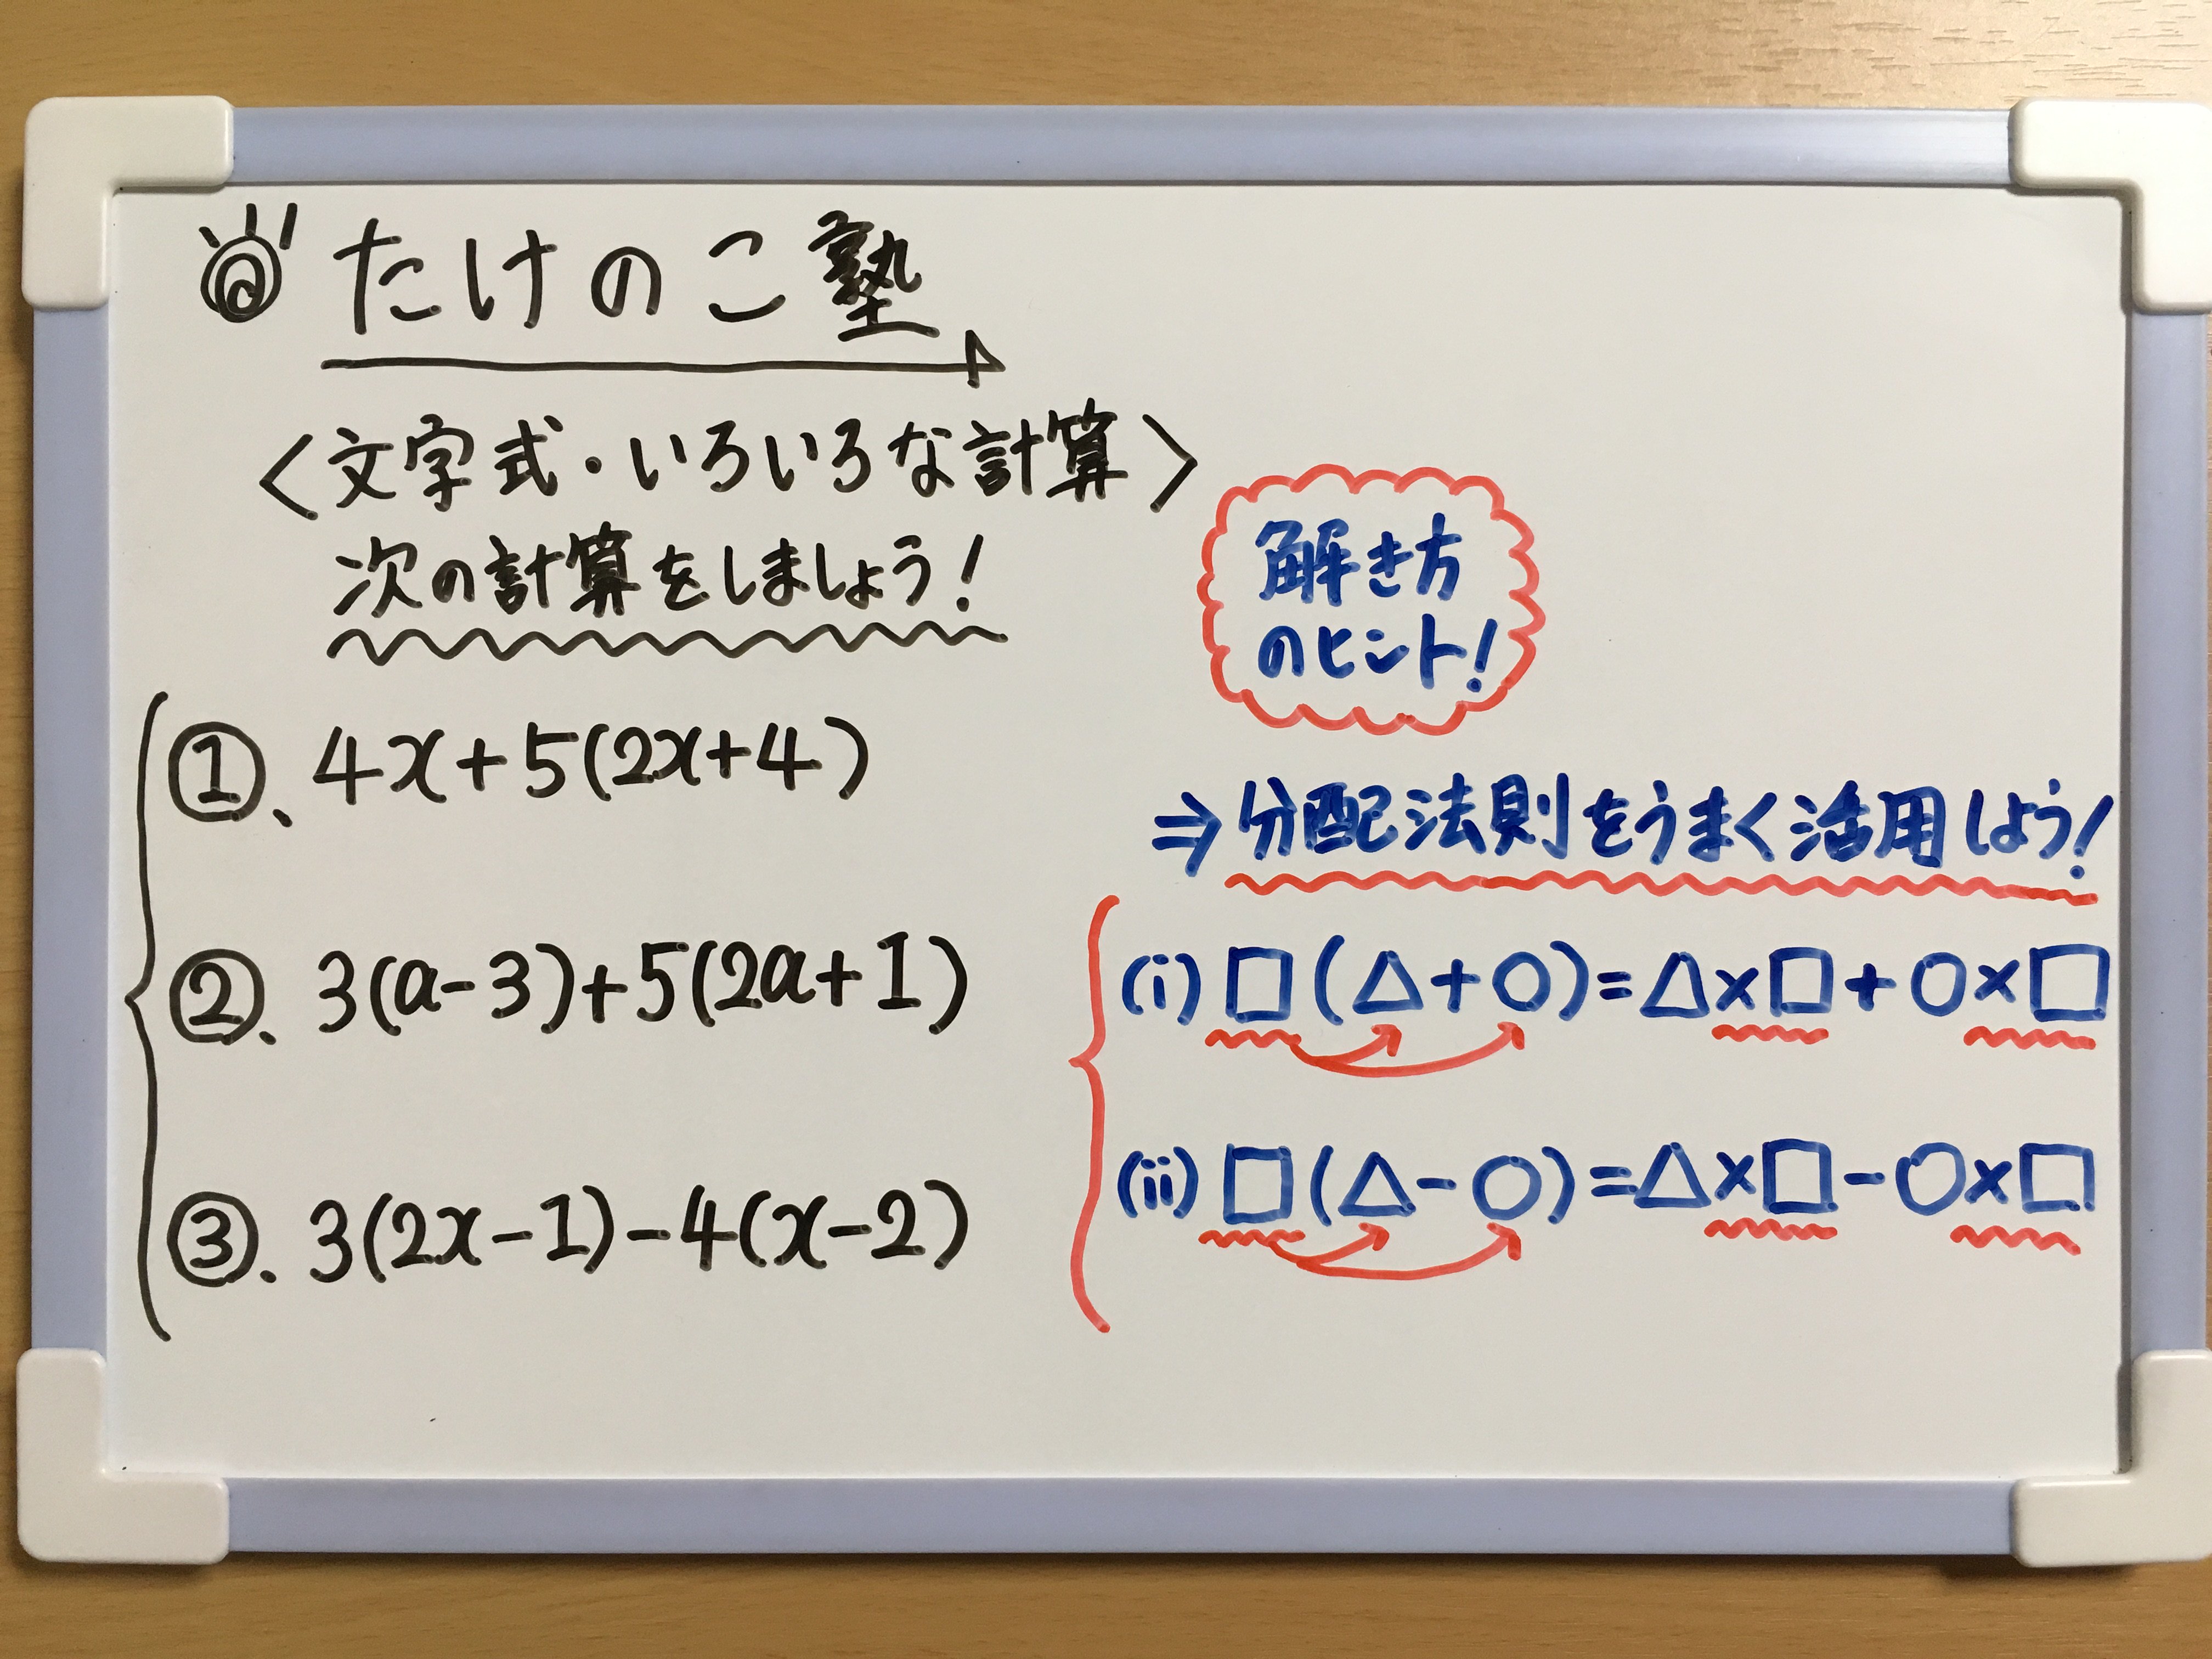 たけのこ塾
〈文字式・いろいろな計算〉
次の計算をしましょう!
①、4x+5(2x+4)
②、3(a-3)+5(2a+1)
③、3(2x-1)-4(x-2)
解き方
のヒント!
⇒分配法則をうまく活用しよう!
(i) □(△+○)=△×□+○×□
(ii) □(△-○)=△×□-○×□